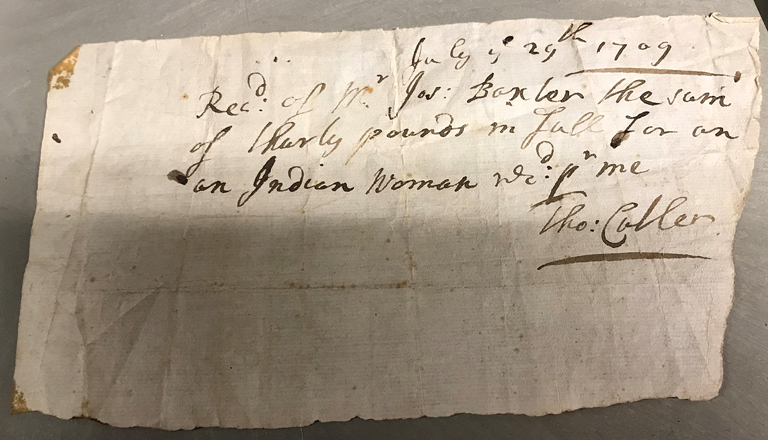 July yᵉ 29th 1709
Rec^d: of Mr Jos: Baxter the sum
of thirty pounds in full for an
an Indian Woman rec:d pr me
Tho: Cutler